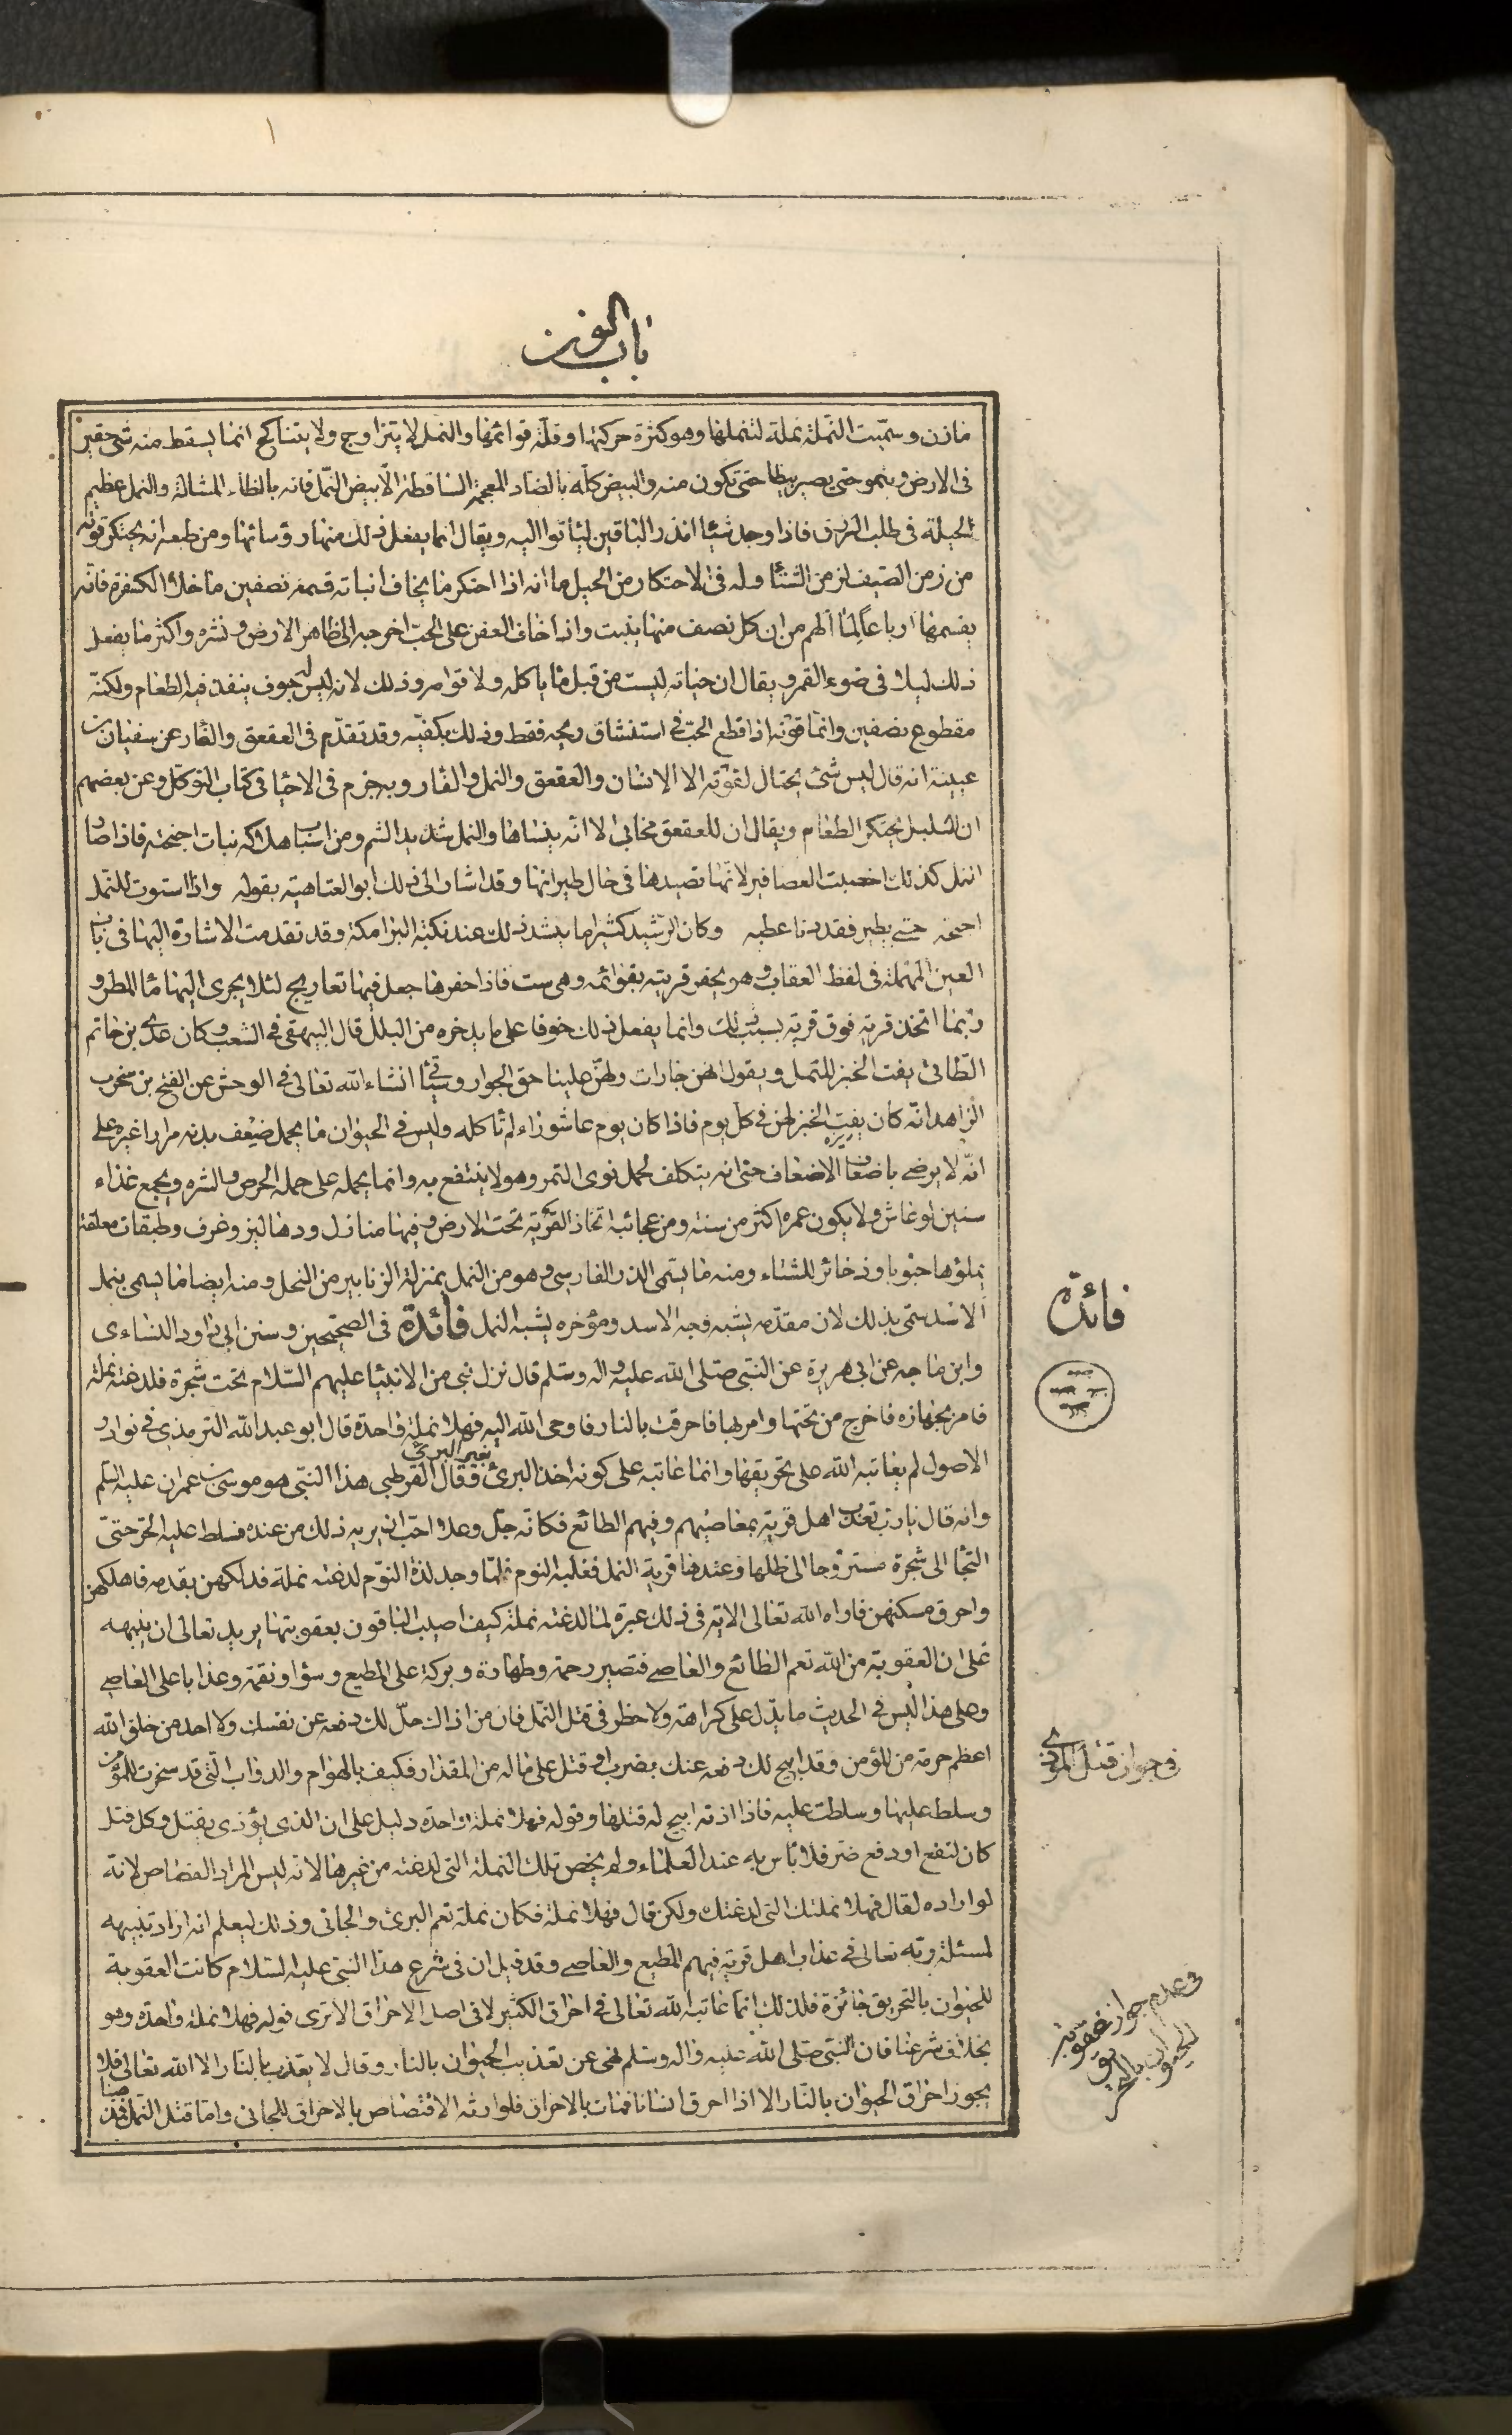 باب النون
مازن وسمّيت النملة نملة لتنملها وهو كثرة حركتها وقلّة قوائمها والنمل لا يتزاوج ولا يتناكح انما يسقط منه شئ حقير
فى الارض وينمو حتى يصير بيظا حتى تكون منه والبيض كلّه بالضاد المعجمة الساقطة الّا بيض النّمل فانه بالظاء المشالة والنمل عظيم
الحيلة فى طلب الرزق فاذا وجد شيئا انذر الباقين لياتوا اليه ويقال انما يفعل ذلك منها رؤسائها ومن طبعه انه يحتكر قوته
من زمن الصيف لزمن الشتاء وله فى الاحتكار من الحيل ما انه اذا احتكر ما يخاف انباته قسمه نصفين ما خلا الكسفرة فانّه
يقسمها ارباعا لما الهم من ان كل نصف منها ينبت واذا خاف العفن على الحبّ اخرجه الى ظاهر الارض ونشره واكثر ما يفعل
ذلك ليلا فى ضوء القمر ويقال ان حياته ليست من قبل ما ياكله ولا قوامه وذلك لانه ليس له جوف ينفذ فيه الطعام ولكنّه
مقطوع نصفين وانّما قوّته اذا قطع الحبّ فى استنشاق ريحه فقط وذلك يكفيه وقد تقدّم فى العقعق والفار عن سفيان بن
عيينة انه قال ليس شئ يحتال لقوته الا الانسان والعقعق والنمل والفار وبه جزم فى الاحيا فى كتاب التوكّل وعن بعضهم
ان البلبل يحتكر الطعام ويقال ان للعقعق مخابى الا انّه ينساها والنمل شديد الشم ومن اسباب هلاكه نبات اجنحته فاذا صار
النمل كذلك اخصبت العصافير لانّها تصيدها فى حال طيرانها وقد اشار الى ذلك ابو العتاهية بقوله واذا استوت للنمل
اجنحة حتى يطير فقد دنا عطبه وكان الرّشيد كثيرا ما ينشد ذلك عند نكبة البرامكة وقد تقدمت الاشارة اليها فى باب
العين المهملة فى لفظ العقاب وهو يحفر قريته بقوائمه وهى ست فاذا حفرها جعل فيها تعاريج لئلا يجرى اليها ماء المطر و
ربّما اتخذ قرية فوق قرية بسبب ذلك وانما يفعل ذلك خوفا على ما يدخره من البلل قال البيهقى فى الشعب وكان عدى بن حاتم
الطّائى يفت الخبز للنمل ويقول انهن جارات ولهنّ علينا حق الجوار وسياتى انشاء الله تعالى فى الوحش عن الفتح بن سخرب
الزاهد انّه كان يفت الخبز لهن فى كلّ يوم فاذا كان يوم عاشوراء لم تاكله وليس فى الحيوان ما يحمل ضعف بدنه مرارا غيره على
انّه لا يرضى باضعاف الاضعاف حتى انه يتكلف لحمل نوى التمر وهو لا ينتفع به وانما يحمله على حمله الحرص والشره ويجمع غذاء
سنين لو عاش ولا يكون عمره اكثر من سنة ومن عجائبه اتخاذ القرية تحت الارض وفيها منازل ودهاليز وغرف وطبقات معلقة
يملؤها حبوبا وذخائر للشتاء ومنه ما يسمّى الذر الفارسى وهو من النمل بمنزلة الزنابير من النحل ومنه ايضا ما يسمى بنمل
الاسد سمّى بذلك لان مقدّمه يشبه وجه الاسد ومؤخره يشبه النمل فائدة فى الصحيحين وسنن ابى داود النساءى
وابن ماجه عن ابى هريرة عن النبّى صلى الله عليه واله وسلم قال نزل نبى من الانبيا عليهم السّلام تحت شجرة فلدغته نملة
فامر بجهازه فاخرج من تحتها وامر بها فاحرقت بالنار فاوحى الله اليه فهلا نملة واحدة قال ابو عبد الله الترمذى فى نوادر
الاصول لم يعاتبه الله على تحويقها وانما عاتبه على كونه اخذ البرئ بغير البرئ فقال القرطبى هذا النبّى هو موسى بن عمران عليه السلم
وانه قال يا رب تعذب اهل قرية بمعاصيهم وفيهم الطائع فكانّه جلّ وعلا احبّ ان يريه ذلك من عنده فسلط عليه الحرّ حتىّ
التجا الى شجرة مستروحا الى ظلها وعندها قرية النمل فغلبه النوم فلمّا وجد لذة النوم لدغته نملة فدلكهن بقدمه فاهلكهن
واحرق مسكنهن فاراه الله تعالى الاية فى ذلك عبرة لما لدغته نملة كيف اصيب الباقون بعقوبتها يريد تعالى ان ينبهه
على ان العقوبة من الله تعم الطائع والعاصى فتصير رحمة وطهارة وبركة على المطيع وسؤا ونقمة وعذابا على العاصى
وعلى هذا ليس فى الحديث ما يدّل على كراهة ولا حظر فى قتل النّمل فان من اذاك حلّ لك دفعه عن نفسك ولا احد من خلق الله
اعظم حرمة من المؤمن وقد ابيح لك دفعه عنك بضرب او قتل على ماله من المقدار فكيف بالهوام والدواب الّتى قد سخرت للمؤمن
وسلط عليها وسلطت عليه فاذا اذته ابيح له قتلها وقوله فهلا نملة واحدة دليل على ان الذى يؤذى يقتل وكل قتل
كان لنفع او دفع ضر فلا باس به عند العلماء ولم يخص تلك النملة التى لدغته من غيرها لانه ليس المراد القصاص لانه
لو اراده لقال فهلا نملتك التى لدغتك ولكن قال فهلا نملة فكان نملة تعم البرئ والجانى وذلك ليعلم انه اراد تنبيهه
لمسئلة ربّه تعالى فى عذاب اهل قرية فيهم المطيع والعاصى وقد قيل ان فى شرع هذا النبّى عليه السّلام كانت العقوبة
للحيوان بالتحريق جائزة فلذلك انّما عاتبه الله تعالى فى احراق الكثير لا فى اصل الاحراق الا ترى قوله فهلا نملة واحدة وهو
بخلاف شرعنا فان النبّى صلى الله عليه واله وسلم نهى عن تعذيب الحيوان بالنار وقال لا يعذب بالنار الا الله تعالى فلا
يجوز احراق الحيوان بالنّار الا اذا احرق انسانا فمات بالاحراق فلوارثه الاقتصاص بالاحراق للجانى وامّا قتل النّمل فمذهبنا
فائدة
فى جواز قتل الموذى
فى عدم جواز عقوبة
الحيوان بالتحريق